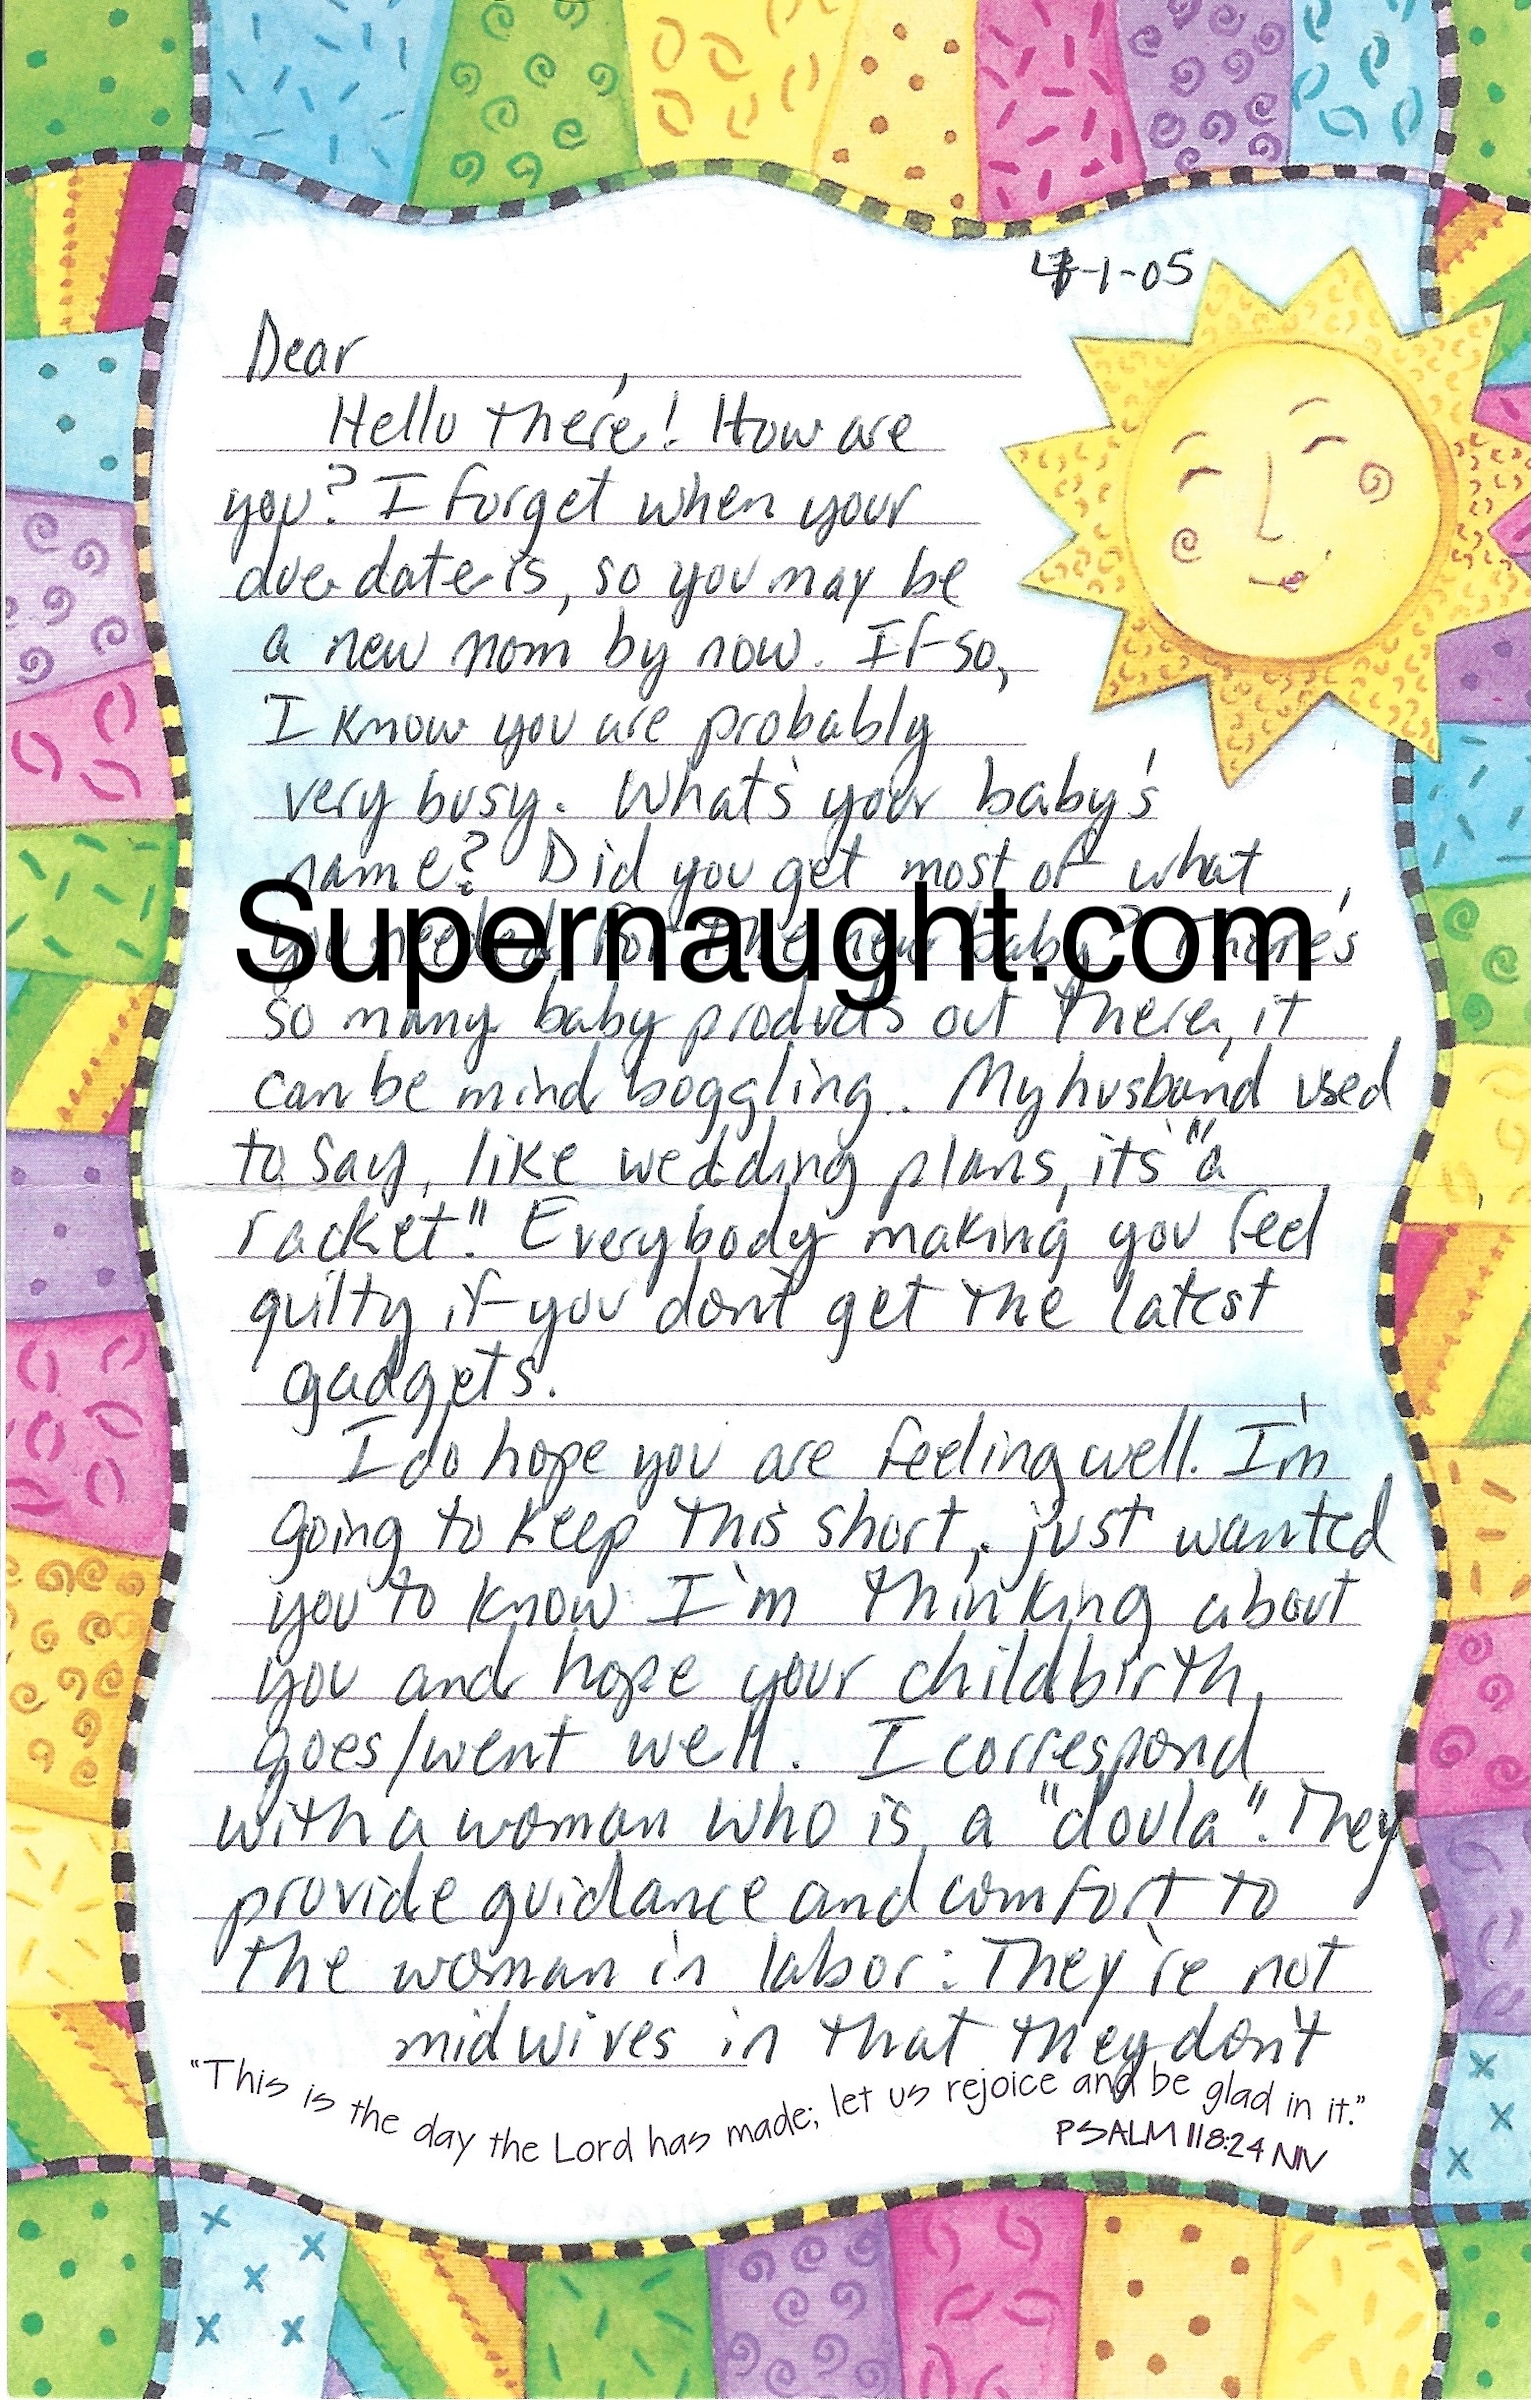 4-1-05
Dear ,
Hello there! How are
you? I forget when your
due date is, so you may be
a new mom by now. If so,
I know you are probably
very busy. What's your baby's
name? Did you get most of what
you needed for the new baby? There's
Supernaught.com
so many baby products out there, it
can be mind boggling.. My husband used
to say, like wedding plans, it's "a
racket." Everybody making you feel
guilty if you don't get the latest
gadgets.
I do hope you are feeling well. I'm
going to keep this short, just wanted
you to know I'm thinking about
you and hope your childbirth
goes/went well. I correspond
with a woman who is a "doula". They
provide guidance and comfort to
the woman in labor: They're not
midwives in that they don't
"This is the day the Lord has made; let us rejoice and be glad in it."
PSALM 118:24 NIV